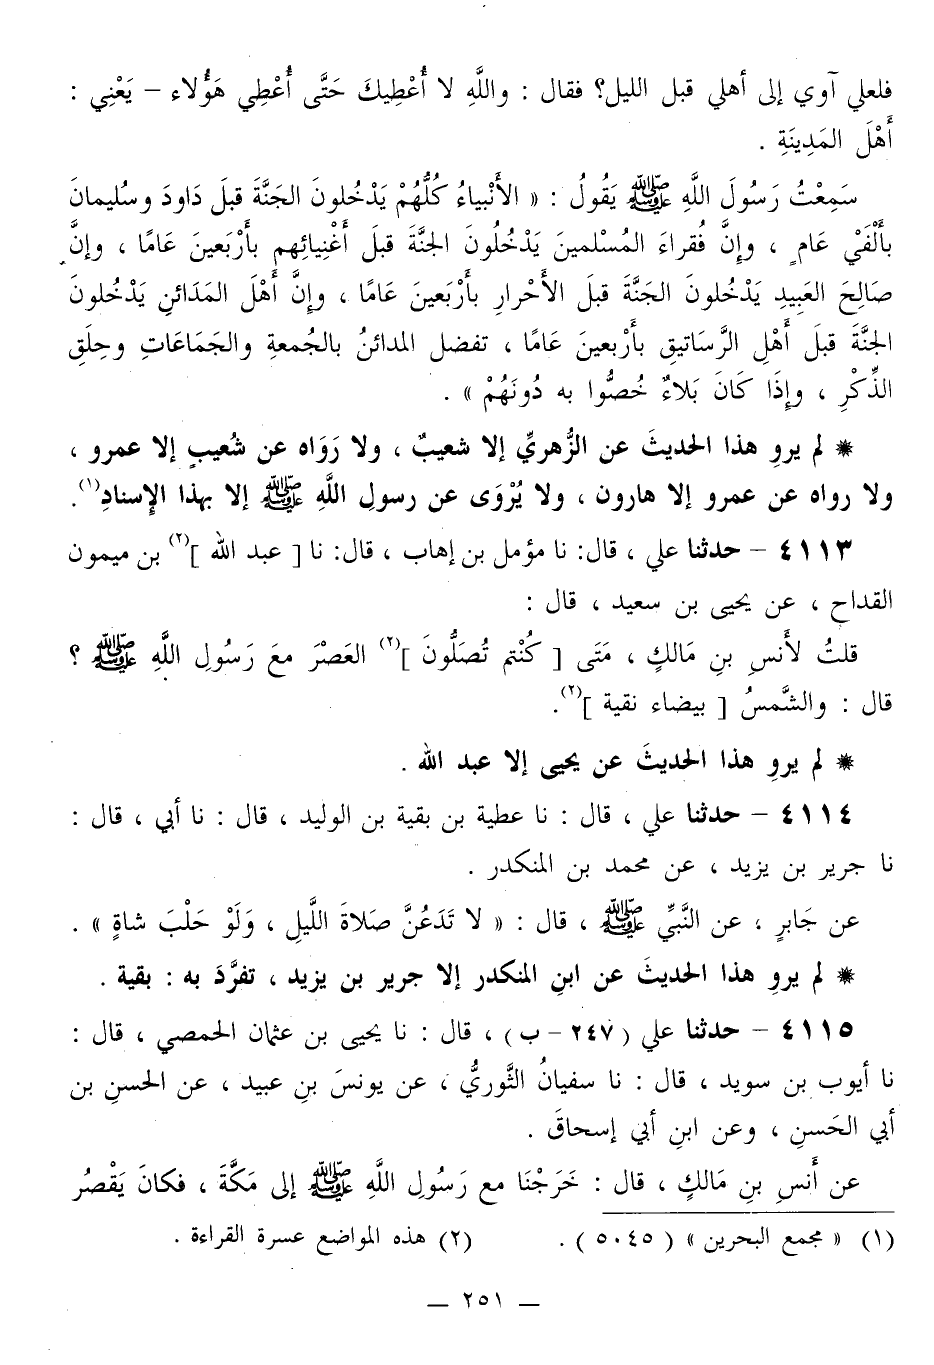 فلعلي آوي إلى أهلي قبل الليل؟ فقال : واللَّهِ لا أُعْطِيكَ حَتَّى أُعْطِي هَؤُلاء – يَعْنِي :
أَهْلَ المَدِينَةِ .
سَمِعْتُ رَسُولَ اللَّهِ ﷺ يَقُولُ : « الأَنْبِياءُ كُلُّهُمْ يَدْخُلونَ الجَنَّةَ قبلَ دَاودَ وسُليمانَ
بأَلْفَيْ عَامٍ ، وإِنَّ فُقراءَ المُسْلمينَ يَدْخُلُونَ الجنَّةَ قبلَ أَغْنِيائِهم بأَرْبَعينَ عَامًا ، وإنَّ
صَالِحَ العَبِيدِ يَدْخُلونَ الجَنَّةَ قبلَ الأَحْرارِ بأَرْبَعينَ عَامًا ، وإِنَّ أَهْلَ المَدَائنِ يَدْخُلونَ
الجنَّةَ قبلَ أَهْلِ الرَّساتيقِ بأَرْبعينَ عَامًا ، تفضل المدائنُ بالجُمعةِ والجَمَاعَاتِ وحِلَقِ
الذِّكْرِ ، وإِذَا كَانَ بَلاءٌ خُصُّوا به دُونَهُمْ » .
* لم يروِ هذا الحديثَ عن الزُّهريِّ إلا شعيبٌ ، ولا رَوَاه عن شُعيبٍ إلا عمرو ،
ولا رواه عن عمرو إلا هارون ، ولا يُرْوَى عن رسولِ اللَّهِ ﷺ إلا بهذا الإِسنادِ(١).
٤١١٣ – حدثنا علي ، قال: نا مؤمل بن إهاب ، قال: نا [ عبد الله ](٢) بن ميمون
القداح ، عن يحيى بن سعيد ، قال :
قلتُ لأَنسِ بنِ مَالكٍ ، مَتَى [ كُنْتم تُصَلُّونَ ](٢) العَصْرَ معَ رَسُولِ اللَّهِ ﷺ ؟
قال : والشَّمسُ [ بيضاء نقية ](٢).
* لم يروِ هذا الحديثَ عن يحيى إلا عبد الله .
٤١١٤ – حدثنا علي ، قال : نا عطية بن بقية بن الوليد ، قال : نا أبي ، قال :
نا جرير بن يزيد ، عن محمد بن المنكدر .
عن جَابرٍ ، عن النَّبيِّ ﷺ ، قال : « لا تَدَعُنَّ صَلاةَ اللَّيلِ ، وَلَوْ حَلْبَ شاةٍ » .
* لم يروِ هذا الحديثَ عن ابنِ المنكدر إلا جرير بن يزيد ، تفرَّدَ به : بقية .
٤١١٥ – حدثنا علي ( ٢٤٧ – ب ) ، قال : نا يحيى بن عثمان الحمصي ، قال :
نا أيوب بن سويد ، قال : نا سفيانُ الثَّوريُّ ، عن يونسَ بنِ عبيد ، عن الحسنِ بن
أبي الحَسنِ ، وعن ابنِ أبي إسحاقَ .
عن أَنسِ بنِ مَالكٍ ، قال : خَرَجْنَا مع رَسُولِ اللَّهِ ﷺ إلى مَكَّةَ ، فكانَ يَقْصُرُ
(١) « مجمع البحرين » ( ٥٠٤٥ ) . (٢) هذه المواضع عسرة القراءة .
– ٢٥١ –